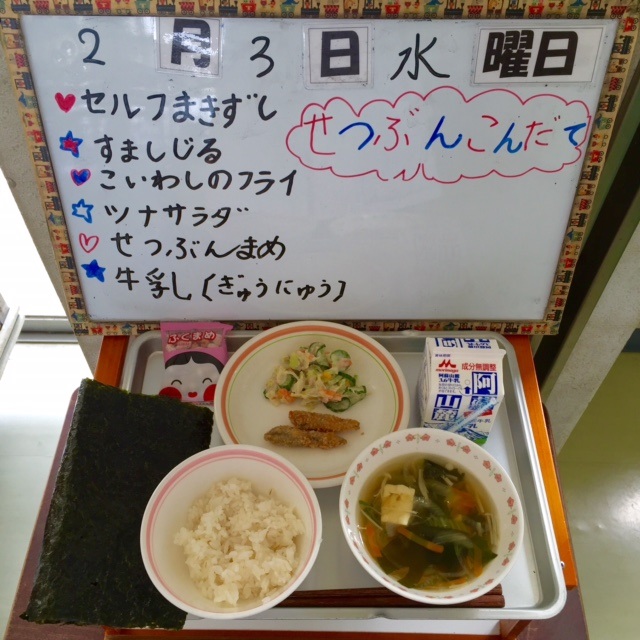 2月3日水曜日
せつぶんこんだて
セルフまきずし
すましじる
こいわしのフライ
ツナサラダ
せつぶんまめ
牛乳し(ぎゅうにゅう)
ふくまめ
成分無調整